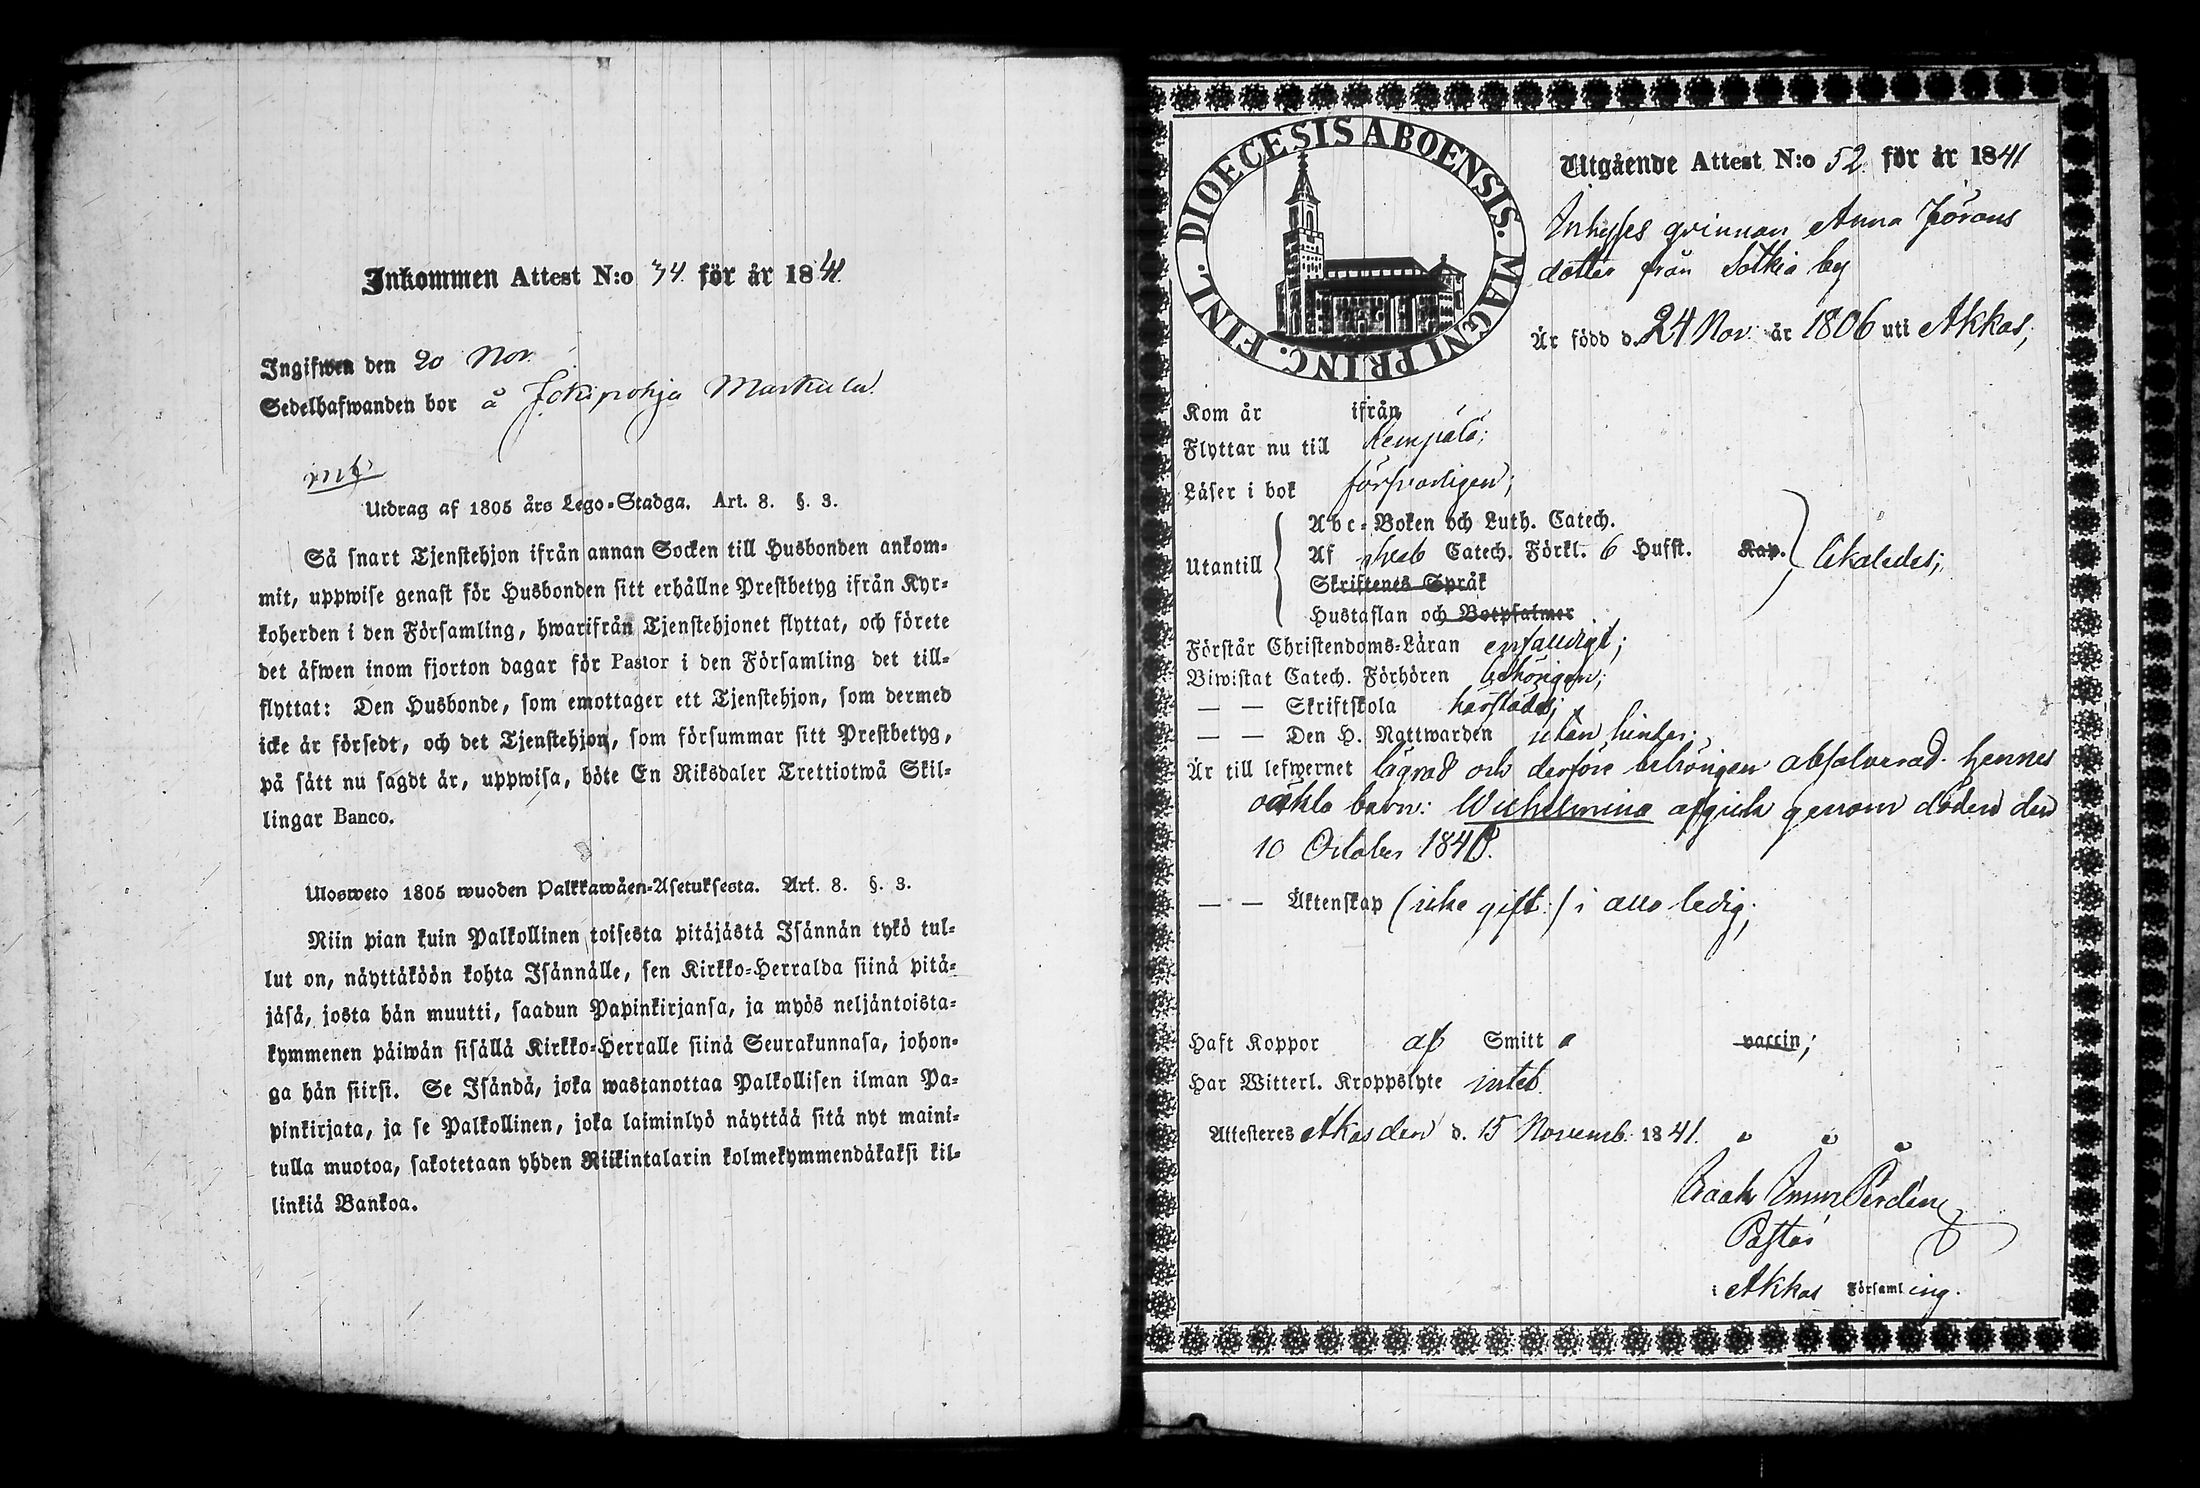 Inkommen Attest N:o 34. för år 1841.
Ingifwen den 20 Nov.
Sedelhafwanden bor å Jokipohja Markula.
Utdrag af 1805 års Lego-Stadga. Art. 8. §. 3.
Så snart Tjenstehjon ifrån annan Socken till Husbonden ankom-
mit, uppwise genast för Husbonden sitt erhållne Prestbetyg ifrån Kyr-
koherden i den Församling, hwarifrån Tjenstehjonet flyttat, och förete
det äfwen inom fjorton dagar för Pastor i den Församling det till-
flyttat: Den Husbonde, som emottager ett Tjenstehjon, som dermed
icke är försedt, och det Tjenstehjon, som försummar sitt Prestbetyg,
på sätt nu sagdt är, uppwisa, böte En Riksdaler Trettiotwå Skil-
lingar Banco.
Ulosweto 1805 wuoden Palkkawäen-Asetuksesta. Art. 8. §. 3.
Niin pian kuin Palkollinen toisesta pitäjästä Isännän tykö tul-
lut on, näyttäköön kohta Isännälle, sen Kirkko-Herralda siinä pitä-
jäsä, josta hän muutti, saadun Papinkirjansa, ja myös neljäntoista-
kymmenen päiwän sisällä Kirkko-Herralle siinä Seurakunnasa, johon-
ga hän siirsi. Se Isändä, joka wastanottaa Palkollisen ilman Pa-
pinkirjata, ja se Palkollinen, joka laiminlyö näyttää sitä nyt maini-
tulla muotoa, sakotetaan yhden Riikintalarin kolmekymmendäkaksi kil-
linkiä Bankoa.
DIOECESIS ABOENSIS. MAGNI PRINC. FINL.
Utgående Attest N:o 52. för år 1841
Inhyses qvinnan Anna Jörans
dotter från Sotkia by
Är född d. 24 Nov. år 1806 uti Akkas;
Kom år ifrån
Flyttar nu till Lempälä;
Läser i bok försvarligen;
Abc-Boken och Luth. Catech.
Utantill Af Sveb Catech. Förkl. 6 Hufst. Kap. likaledes;
Skriftenes Språk
Hustaflan och Botpsalmer
Förstår Christendoms-Läran enfaldigt;
Biwistat Catech. Förhören behörigen;
— — Skriftskola härstädes;
— — Den H. Nattwarden utan hinder;
Är till lefwernet lägrad och derföre behörigen absolverad. Hennes
oäkta barn: Wilhelmina afgick genom döden den
10 October 1840.
— — Äktenskap (icke gift:/ i allo ledig;
Haft Koppor af Smitt a vaccin;
Har Witterl. Kroppslyte intet.
Attesteres Akkas den d. 15 Novemb. 1841.
Pastor
i Akkas Församling.